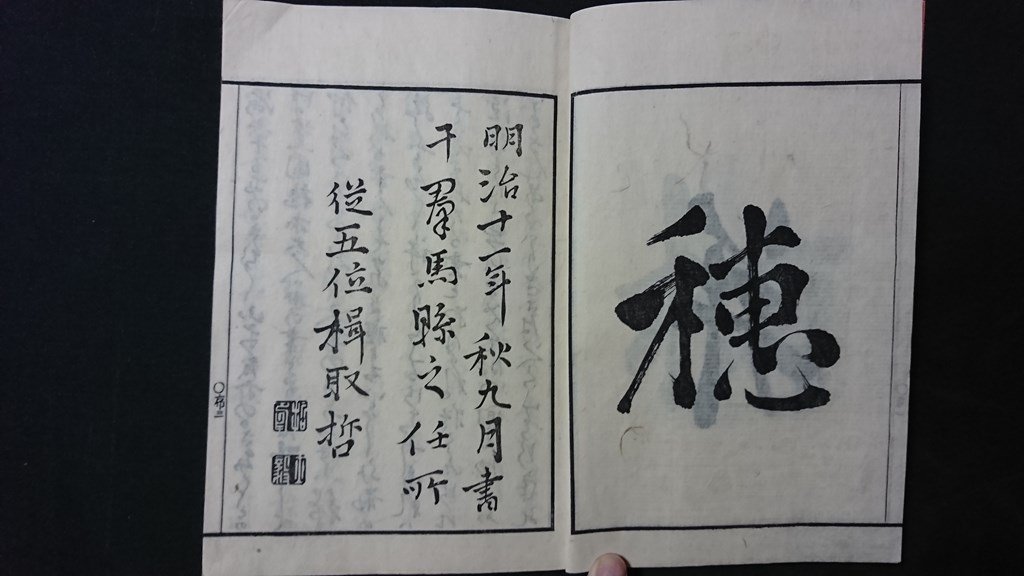 穗
明治十一年秋九月書
于羣馬縣之任所
従五位楫取哲